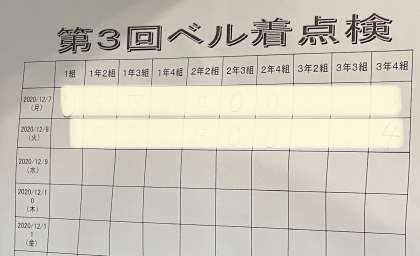 第3回ベル着点検
1組 1年2組 1年3組 1年4組 2年2組 2年3組 2年4組 3年2組 3年3組 3年4組
2020/12/7
(月)
2020/12/8
(火)
2020/12/9
(水)
2020/12/1
0
(木)
2020/12/1
1
(金)